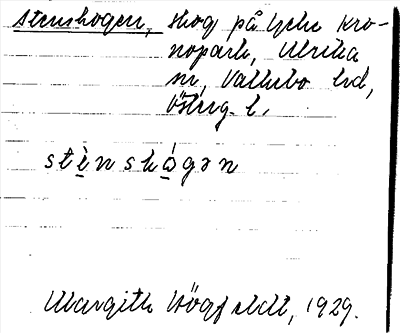 Stenskogen, skog på Lycke kro-
nopark, Ulrika
sn, Valkebo hd,
Östерg. l.
stènskógən
Margith Högfeldt, 1929.